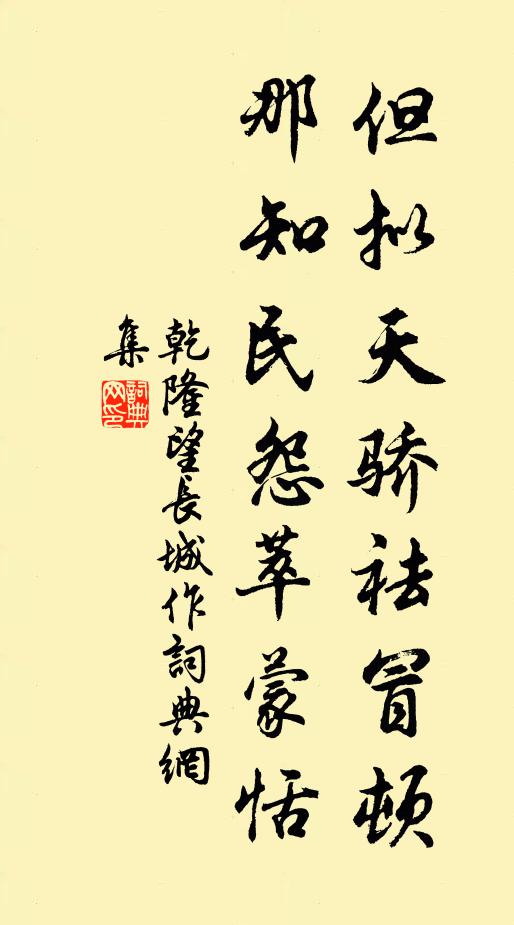 但拟天骄祛冒顿
那知民怨萃蒙恬
乾隆望長城作詞典網
集
詞典
网印